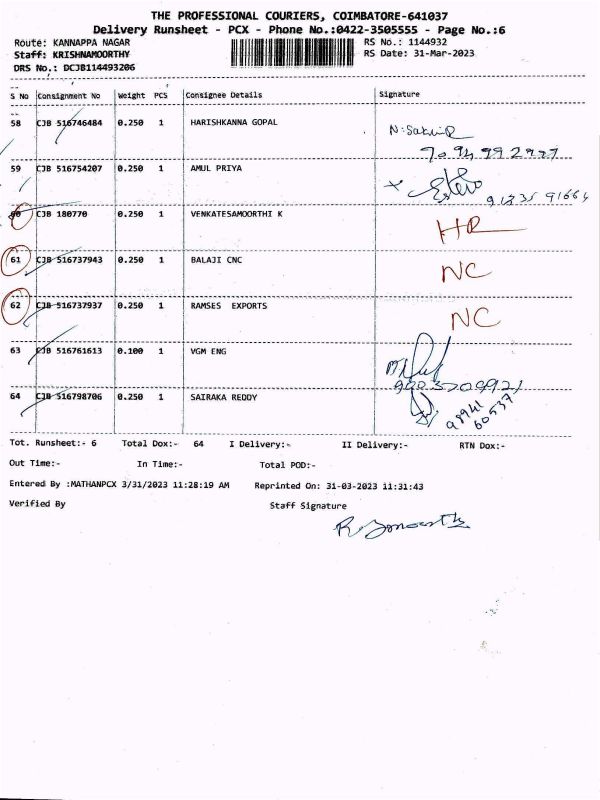 THE PROFESSIONAL COURIERS, COIMBATORE-641037
Delivery Runsheet - PCX - Phone No.:0422-3505555 - Page No.:6
Route: KANNAPPA NAGAR RS No.: 1144932
Staff: KRISHNAMOORTHY RS Date: 31-Mar-2023
DRS No.: DCJB114493206
S No Consignment No Weight PCS Consignee Details Signature
58 CJB 516746484 0.250 1 HARISHKANNA GOPAL
59 CJB 516754207 0.250 1 AMUL PRIYA
60 CJB 180770 0.250 1 VENKATESAMOORTHI K HR
61 CJB 516737943 0.250 1 BALAJI CNC NC
62 CJB 516737937 0.250 1 RAMSES EXPORTS NC
63 CJB 516761613 0.100 1 VGM ENG
9003709921
64 CJB 516798706 0.250 1 SAIRAKA REDDY 98941
60537
Tot. Runsheet:- 6 Total Dox:- 64 I Delivery:- II Delivery:- RTN Dox:-
Out Time:- In Time:- Total POD:-
Entered By :MATHANPCX 3/31/2023 11:28:19 AM Reprinted On: 31-03-2023 11:31:43
Verified By Staff Signature